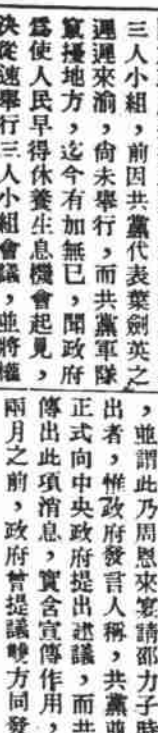 三人小組，前因共黨代表葉劍英之
遲遲來渝，尙未舉行，而共黨軍隊
竄擾地方，迄今有加無已，聞政府
爲使人民早得休養生息機會起見，
決從速舉行三人小組會議，並將權
，並謂此乃周恩來宴請邵力子時
出者，惟政府發言人稱，共黨並
正式向中央政府提出此議，而共
傳出此項消息，實含宣傳作用，
兩月之前，政府曾提議雙方同發